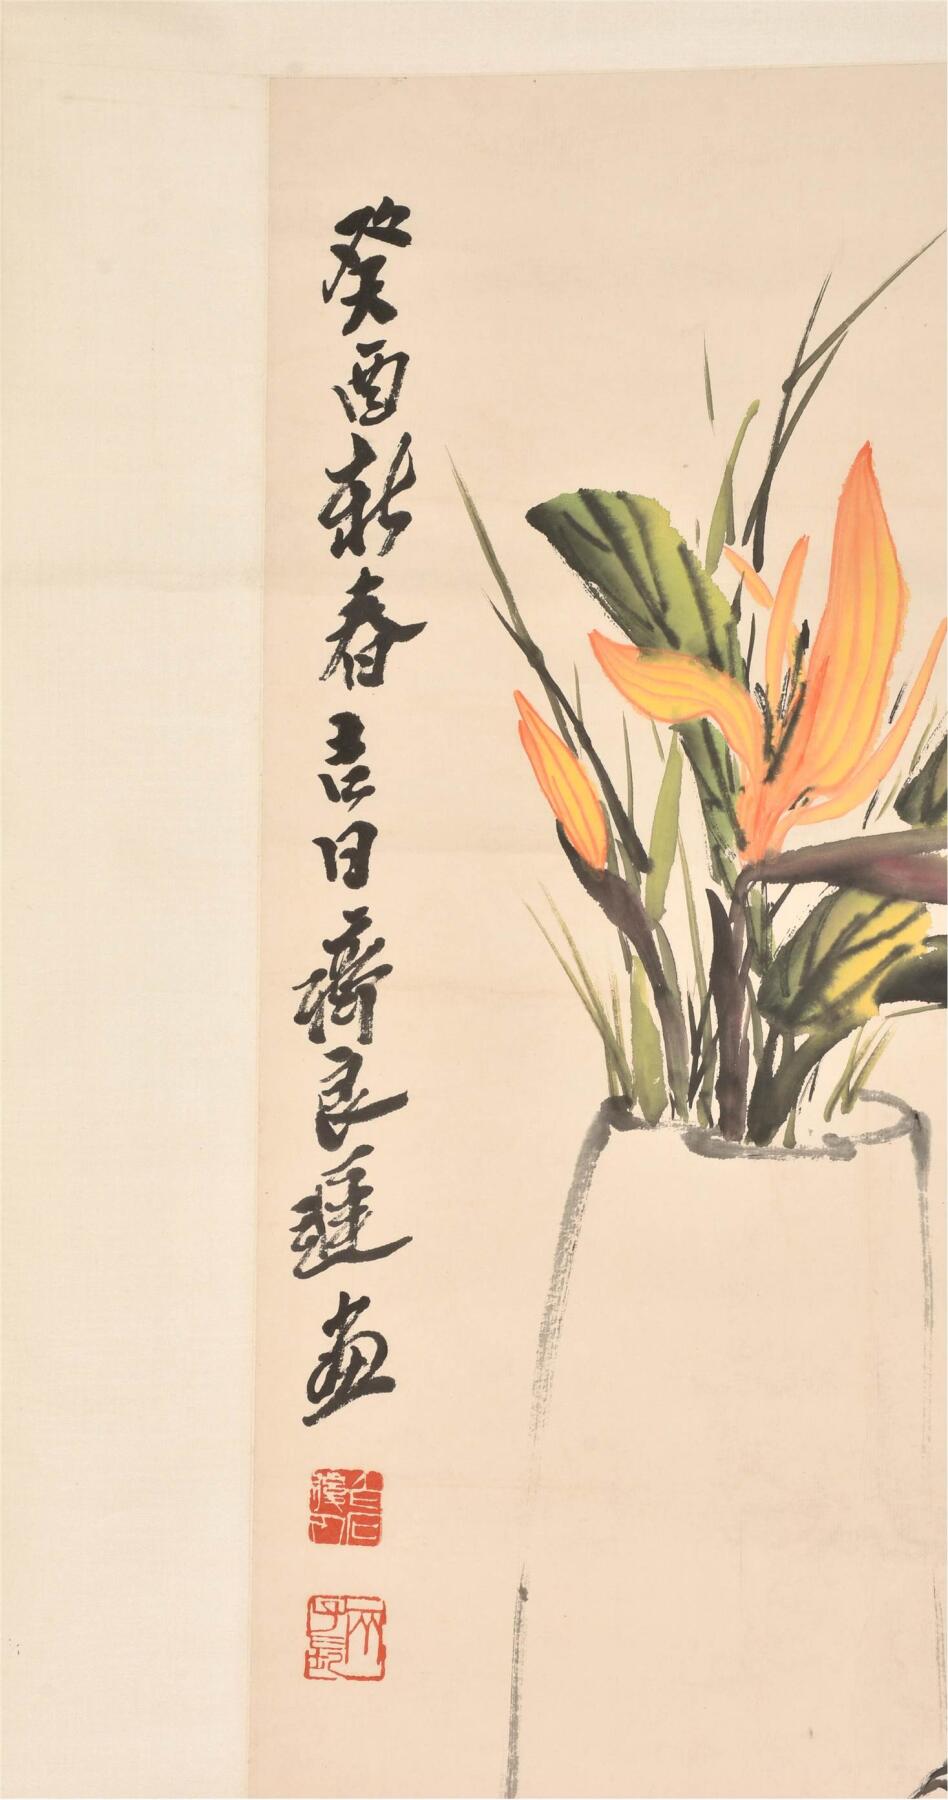 癸酉新春吉日齊良遲畫